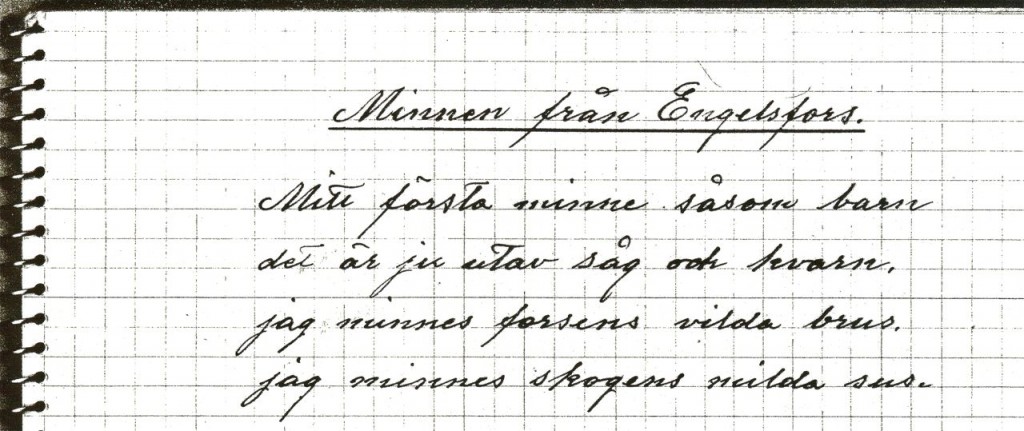 Minnen från Engelsfors.
Mitt första minne såsom barn
det är ju utav såg och kvarn.
jag minnes forsens vilda brus.
jag minnes skogens milda sus.